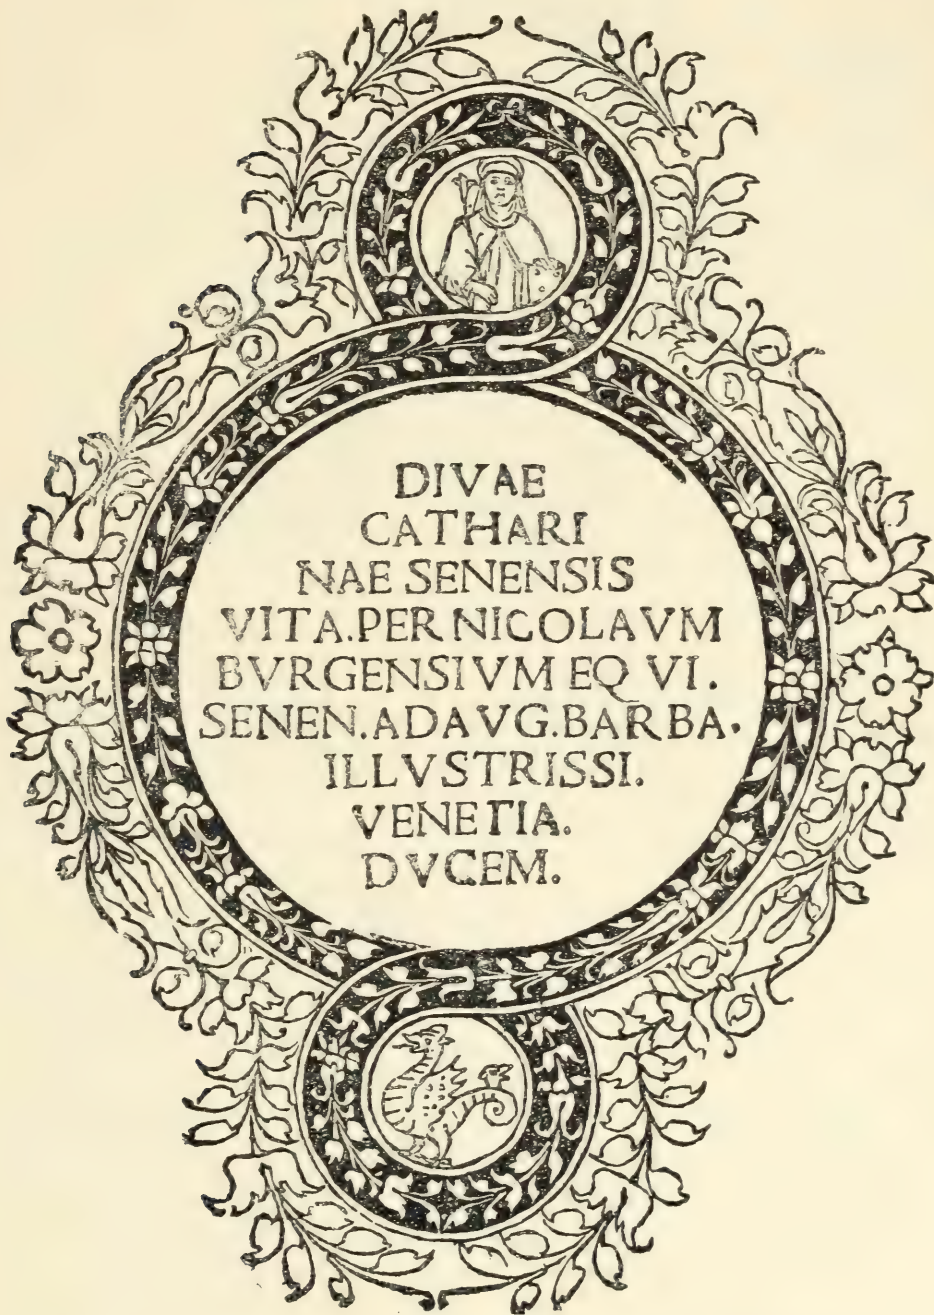 DIVAE
CATHARI
NAE SENENSIS
VITA.PER NICOLAVM
BVRGENSIVM EQ VI.
SENEN.AD AVG.BARBA.
ILLVSTRISSI.
VENETIA.
DVCEM.